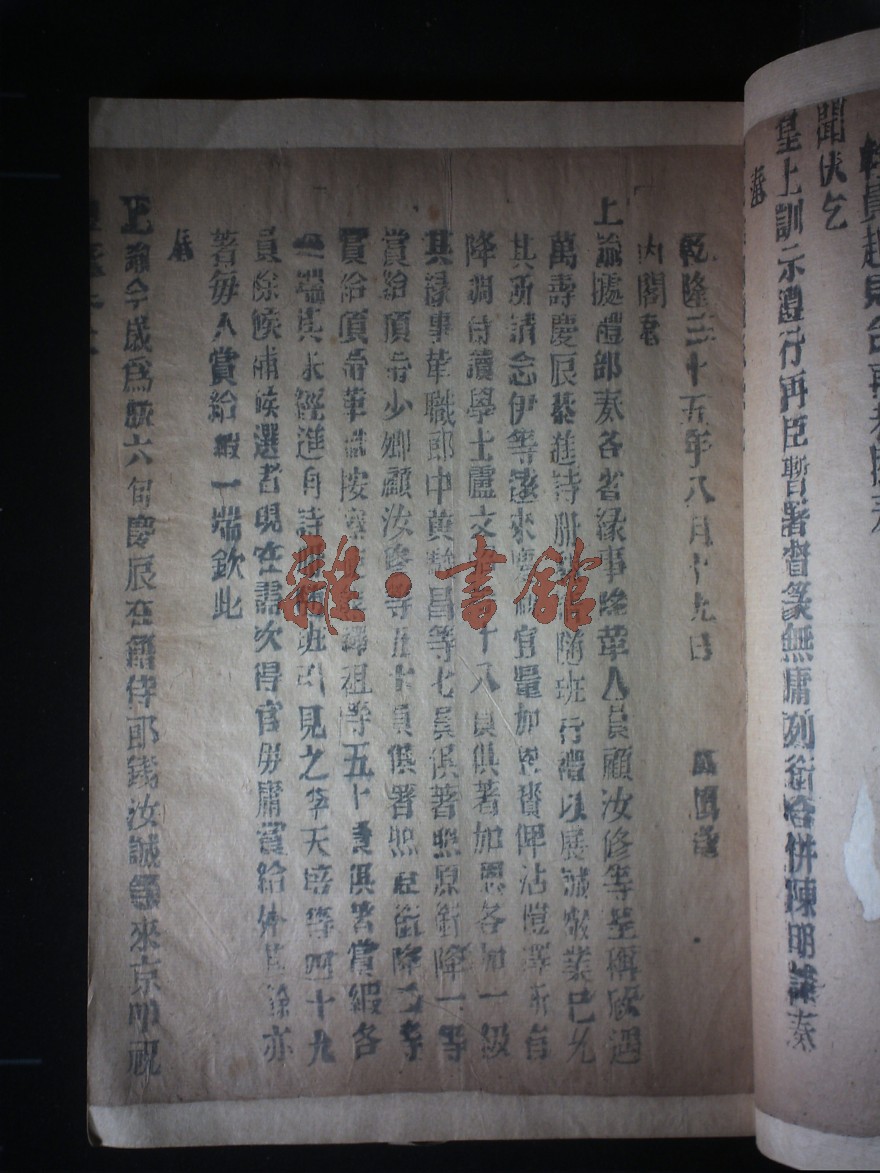 聞伏乞
皇上訓示遵行再臣暫署督篆無庸列銜合併陳明謹奏
乾隆三十五年八月十九日
內閣奉
上諭據禮部奏各省緣事降革人員顧汝修等呈稱欣遇
萬壽慶辰恭進詩冊 隨班行禮以展誠 業已允
其所請念伊等遠來 官量加恩賚俾沾愷澤 有
降調侍讀學士盧文 十八員俱著加恩各加一級
其緣事革職郎中黃 昌等七員俱著照原銜降一等
賞給頂帶少卿顧汝修等五十員俱著照原銜降二等
賞給頂帶革職按 祖等五十員俱著賞緞各
一端其未經進冊詩 班引見之李天培等四十九
員除候補候選者現在需次得官毋庸賞給外其餘亦
著每人賞給緞一端欽此
奏
上諭今歲為朕六旬慶辰在籍侍郎錢汝誠等來京叩祝
雜·書館